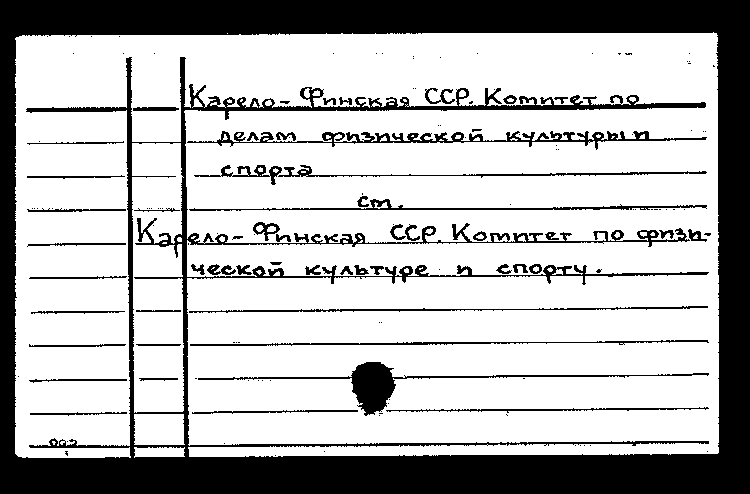 Карело-Финская ССР. Комитет по
делам физической культуры и
спорта
см.
Карело-Финская ССР. Комитет по физи-
ческой культуре и спорту.